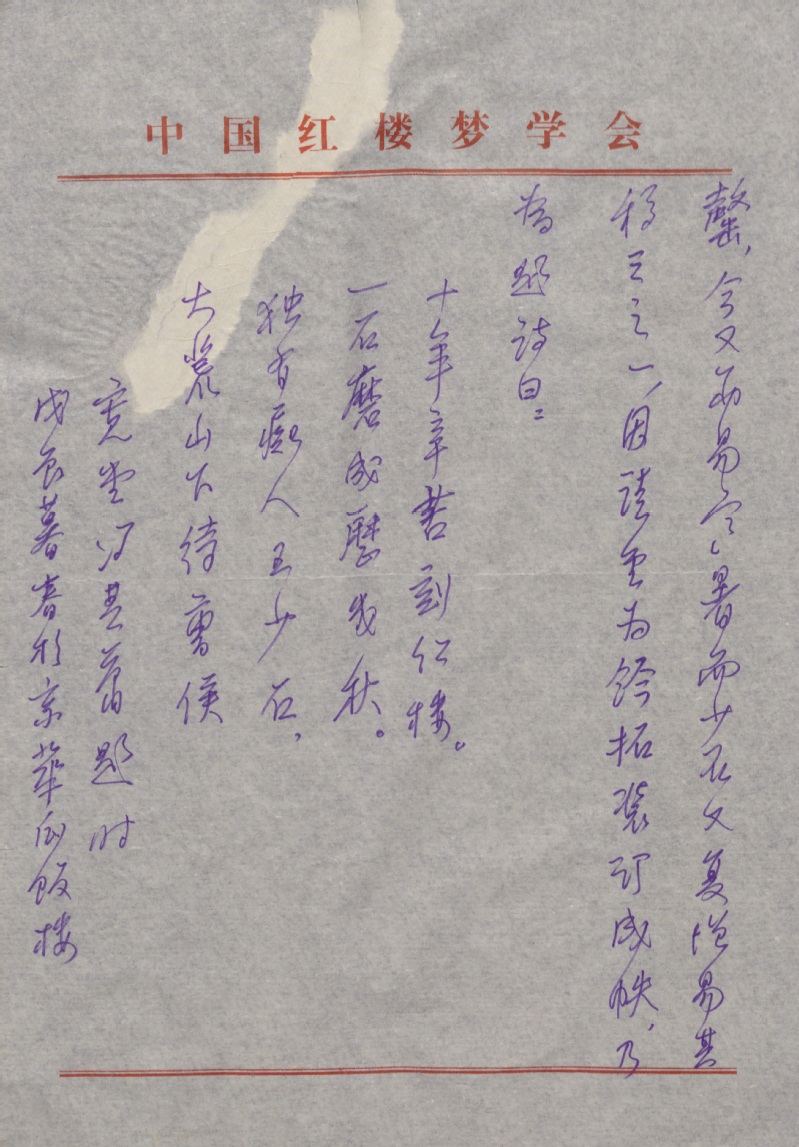 中国红楼梦学会
罄，今又两易寒暑而少石又复增易其
稿三之一，因请重为钤拓装订成帙，乃
为题诗曰：
十年辛苦刻红楼。
一石磨成历几秋。
独有痴人王少石，
大荒山下待曹侯
宽堂冯其庸题时
戊辰暮春于京华瓜饭楼